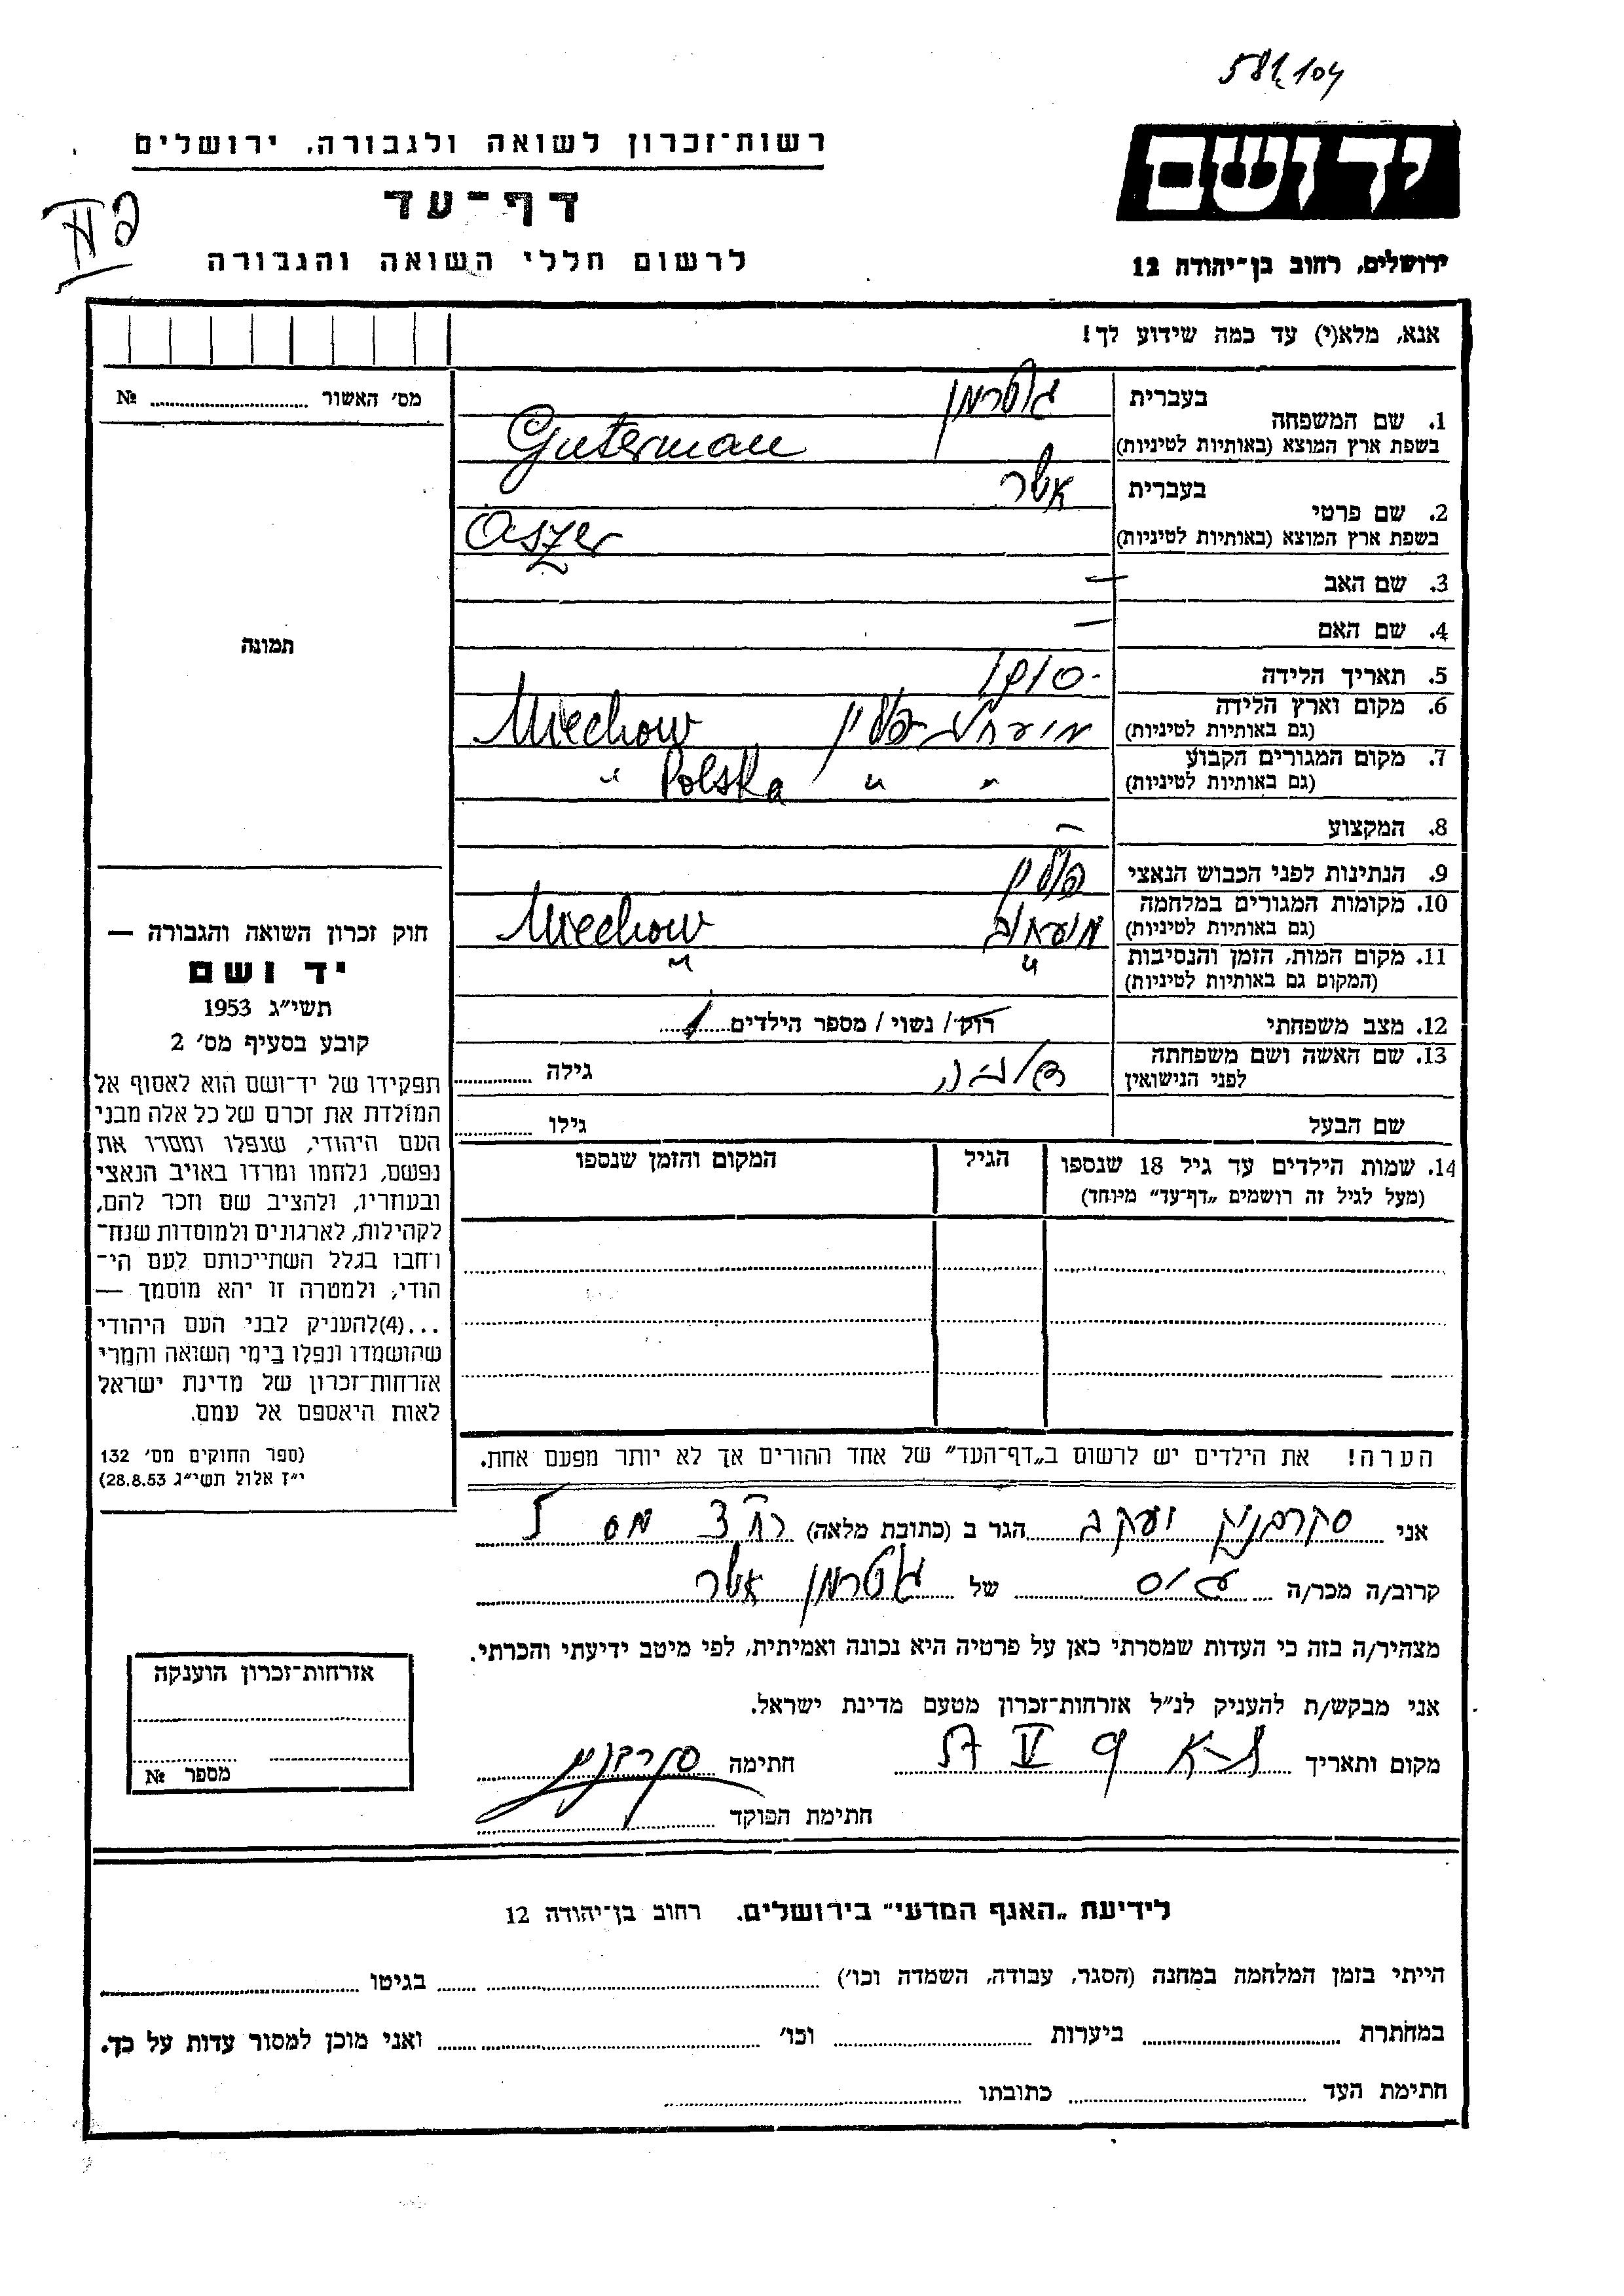 581/104
יד ושם
רשות־זכרון לשואה ולגבורה, ירושלים
דף־עד
לרשום חללי השואה והגבורה
ירושלים, רחוב בן־יהודה 12
אנא, מלא(י) עד כמה שידוע לך!
מס׳ האשור № ........
1. שם המשפחה
בעברית גוטרמן
בשפת ארץ המוצא (באותיות לטיניות) Guterman
2. שם פרטי
בעברית אשר
בשפת ארץ המוצא (באותיות לטיניות) Aszer
3. שם האב —
4. שם האם —
5. תאריך הלידה 1910
6. מקום וארץ הלידה
(גם באותיות לטיניות) פולין Miechow
7. מקום המגורים הקבוע
(גם באותיות לטיניות) " " Polska "
8. המקצוע —
9. הנתינות לפני הכבוש הנאצי פולין
10. מקומות המגורים במלחמה
(גם באותיות לטיניות) Miechow
11. מקום המות, הזמן והנסיבות
(המקום גם באותיות לטיניות) " "
12. מצב משפחתי רווק / נשוי / מספר הילדים 1
13. שם האשה ושם משפחתה
לפני הנישואין גילה ........
שם הבעל גילו ........
14. שמות הילדים עד גיל 18 שנספו
(מעל לגיל זה רושמים „דף־עד” מיוחד)
הגיל
המקום והזמן שנספו
תמונה
חוק זכרון השואה והגבורה —
יד ושם
תשי״ג 1953
קובע בסעיף מס׳ 2
תפקידו של יד־ושם הוא לאסוף אל
המולדת את זכרם של כל אלה מבני
העם היהודי, שנפלו ומסרו את
נפשם, נלחמו ומרדו באויב הנאצי
ובעוזריו, ולהציב שם וזכר להם,
לקהילות, לארגונים ולמוסדות שנח־
רבו בגלל השתייכותם לעם הי־
הודי, ולמטרה זו יהא מוסמך —
...(4)להעניק לבני העם היהודי
שהושמדו ונפלו בימי השואה והמרי
אזרחות־זכרון של מדינת ישראל
לאות היאספם אל עמם.
(ספר החוקים מס׳ 132
י״ז אלול תשי״ג 28.8.53)
הערה! את הילדים יש לרשום ב„דף־העד” של אחד ההורים אך לא יותר מפעם אחת.
אני יעקב הגר ב (כתובת מלאה) מס 5
קרוב/ה מכר/ה של גוטרמן אשר
מצהיר/ה בזה כי העדות שמסרתי כאן על פרטיה היא נכונה ואמיתית, לפי מיטב ידיעתי והכרתי.
אני מבקש/ת להעניק לנ״ל אזרחות־זכרון מטעם מדינת ישראל.
מקום ותאריך ת־א 9 V 57 חתימה
חתימת הפוקד ........
אזרחות־זכרון הוענקה
מספר №
לידיעת „האגף המדעי” בירושלים. רחוב בן־יהודה 12
הייתי בזמן המלחמה במחנה (הסגר, עבודה, השמדה וכו׳) ........ בגיטו ........
במחתרת ........ ביערות ........ וכו׳ ........ ואני מוכן למסור עדות על כך.
חתימת העד ........ כתובתו ........